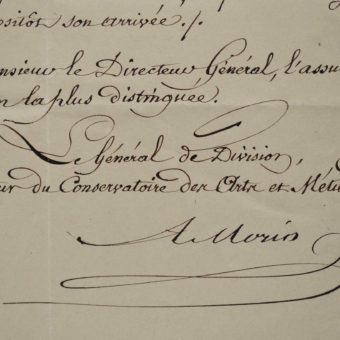 ssitôt son arrivée ./.
nsieur le Directeur Général, l'assu
n la plus distinguée.
Le Général de Division,
ur du Conservatoire des Arts et Méti
A Morin